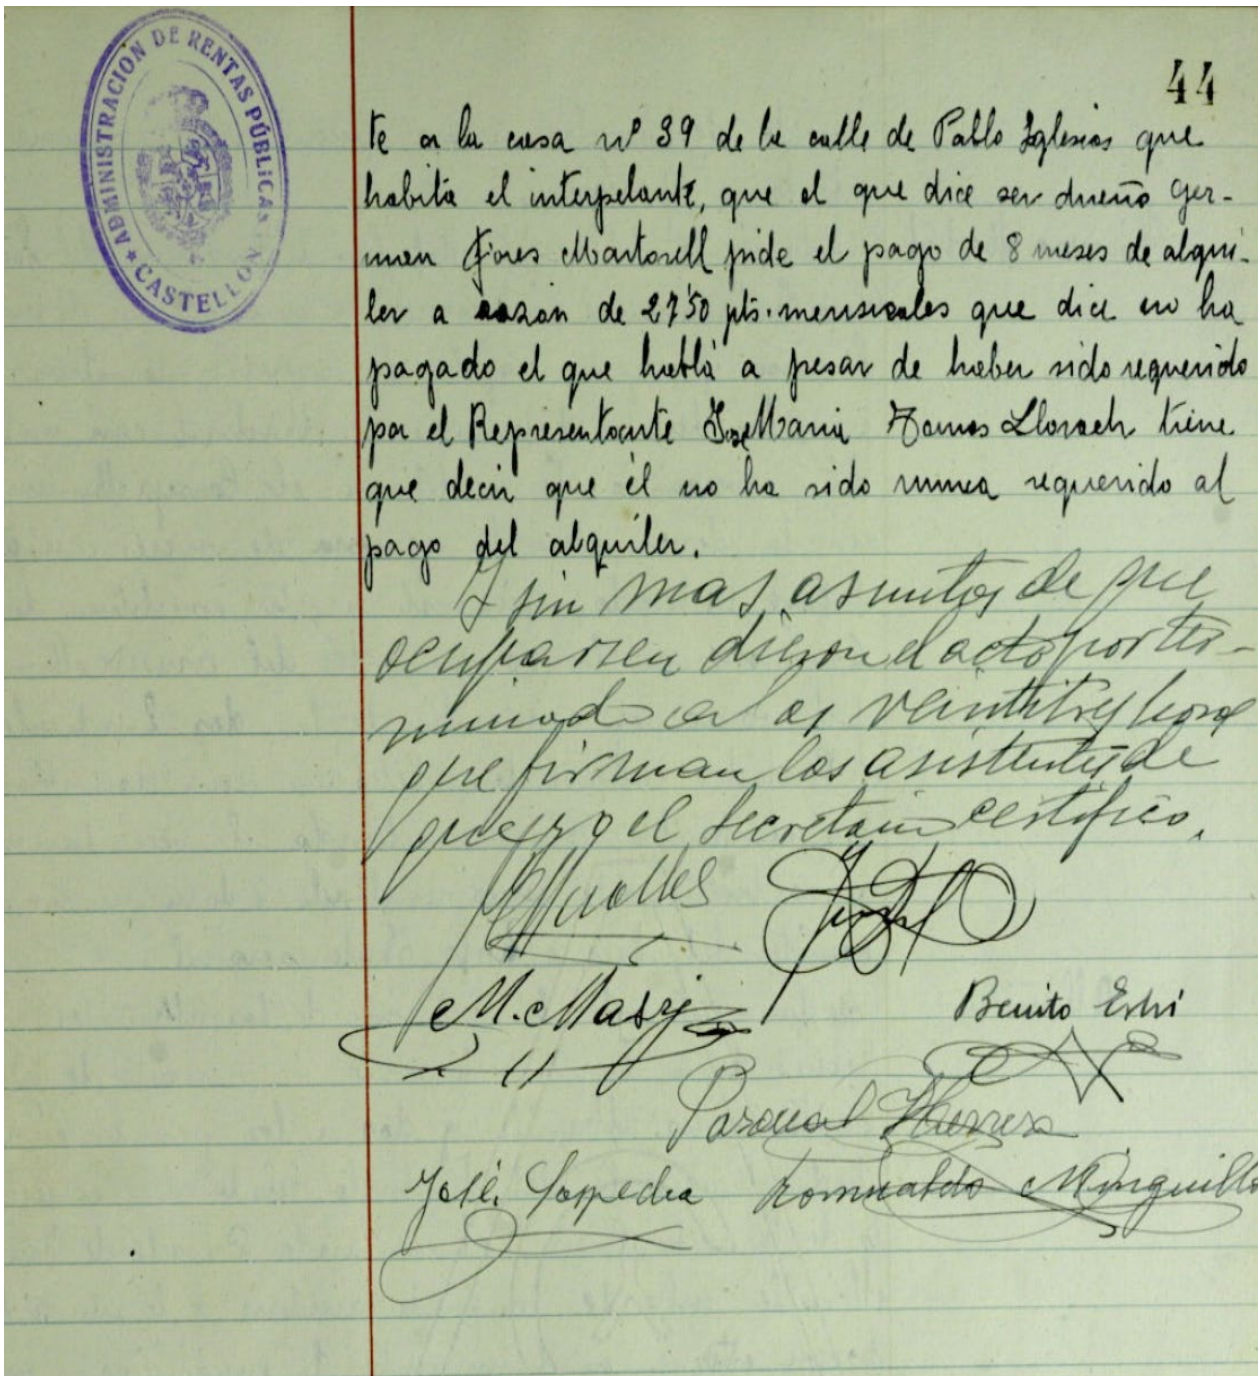 ADMINISTRACION DE RENTAS PÚBLICAS
* CASTELLON
44
te a la casa nº 39 de la calle de Pablo Iglesias que
habita el interpelante, que el que dice ser dueño Ger-
man Fores Martorell pide el pago de 8 meses de alqui-
ler a razon de 27'50 pts. mensuales que dice no ha
pagado el que habla a pesar de haber sido requerido
por el Representante José Maria Llorach tiene
que decir que él no ha sido nunca requerido al
pago del alquiler.
Y sin mas asuntos de que
ocuparsen dieron el acto por ter-
minado a las veintitres horas
que firman los asistentes de
que yo el Secretario certifico.
M. Masip
Benito
Pascual Herrera
José Sospedra Romualdo Minguillo